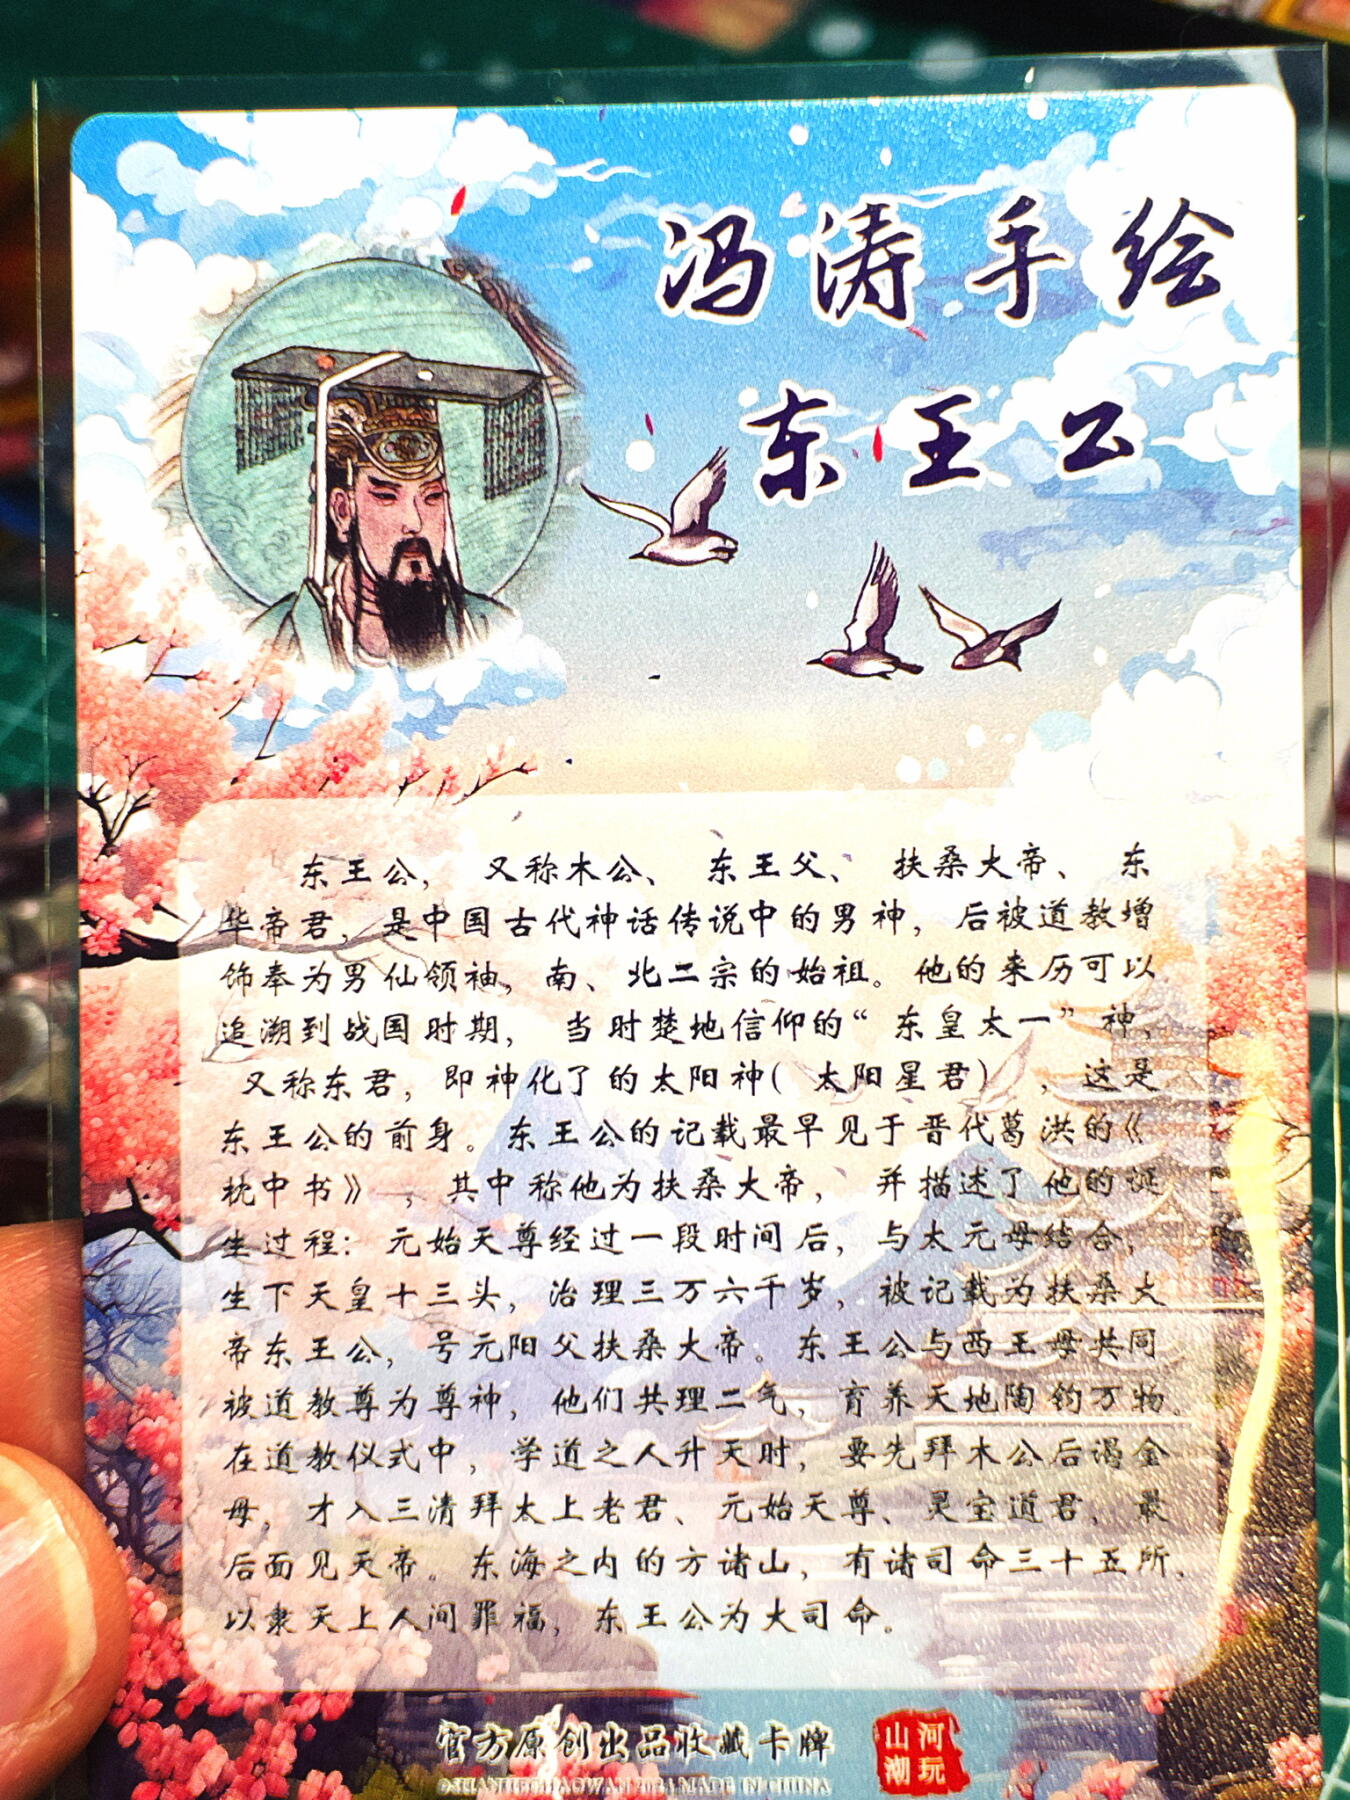 冯涛手绘
东王公
东王公， 又称木公、 东王父、 扶桑大帝、 东
华帝君，是中国古代神话传说中的男神，后被道教增
饰奉为男仙领袖，南、北二宗的始祖。他的来历可以
追溯到战国时期， 当时楚地信仰的“ 东皇太一” 神，
又称东君，即神化了的太阳神（ 太阳星君） ，这是
东王公的前身。东王公的记载最早见于晋代葛洪的《
枕中书》 ，其中称他为扶桑大帝， 并描述了他的诞
生过程：元始天尊经过一段时间后，与太元母结合，
生下天皇十三头，治理三万六千岁，被记载为扶桑大
帝东王公，号元阳父扶桑大帝。东王公与西王母共同
被道教尊为尊神，他们共理二气，育养天地陶钧万物，
在道教仪式中，学道之人升天时，要先拜木公后谒金
母，才入三清拜太上老君、元始天尊、灵宝道君，最
后面见天帝。东海之内的方诸山，有诸司命三十五所，
以隶天上人间罪福，东王公为大司命。
官方原创出品收藏卡牌
山河
潮玩
©SHANHECHAOWAN 2024 MADE IN CHINA